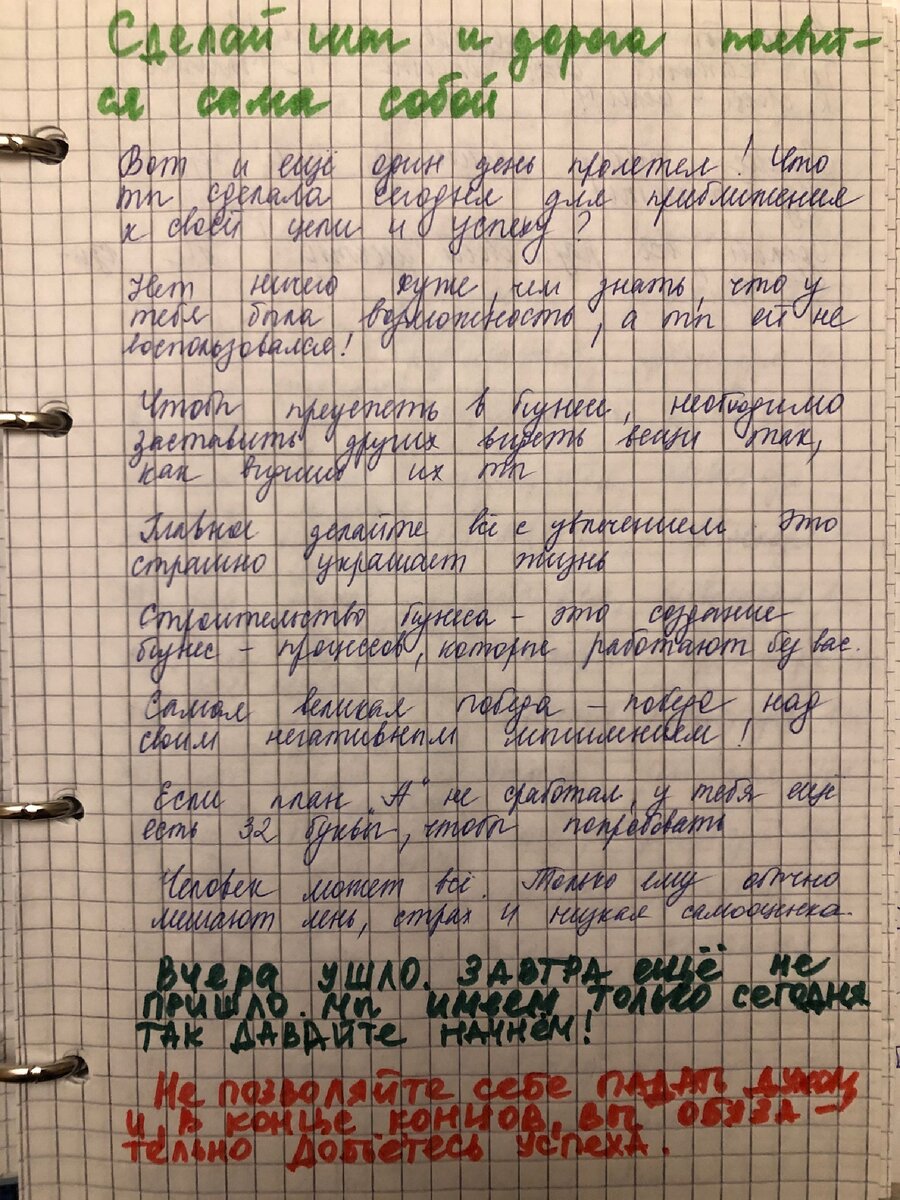 Сделай шаг и дорога появит-
ся сама собой
Вот и ещё один день пролетел! Что
ты сделала сегодня для приближения
к своей цели и успеху?
Нет ничего хуже, чем знать, что у
тебя была возможность, а ты ей не
воспользовался!
Чтобы преуспеть в бизнесе, необходимо
заставить других видеть вещи так,
как видишь их ты
Главное делайте всё с увлечением. Это
страшно украшает жизнь
Строительство бизнеса – это создание
бизнес – процессов, которые работают без вас.
Самая великая победа – победа над
своим негативным мышлением!
Если план „А" не сработал, у тебя ещё
есть 32 буквы, чтобы попробовать
Человек может всё. Только ему обычно
мешают лень, страх и низкая самооценка.
Вчера ушло. Завтра ещё не
пришло. Мы имеем только сегодня
так давайте начнём!
Не позволяйте себе падать духом
и, в конце концов, вы обяза-
тельно добьётесь успеха.